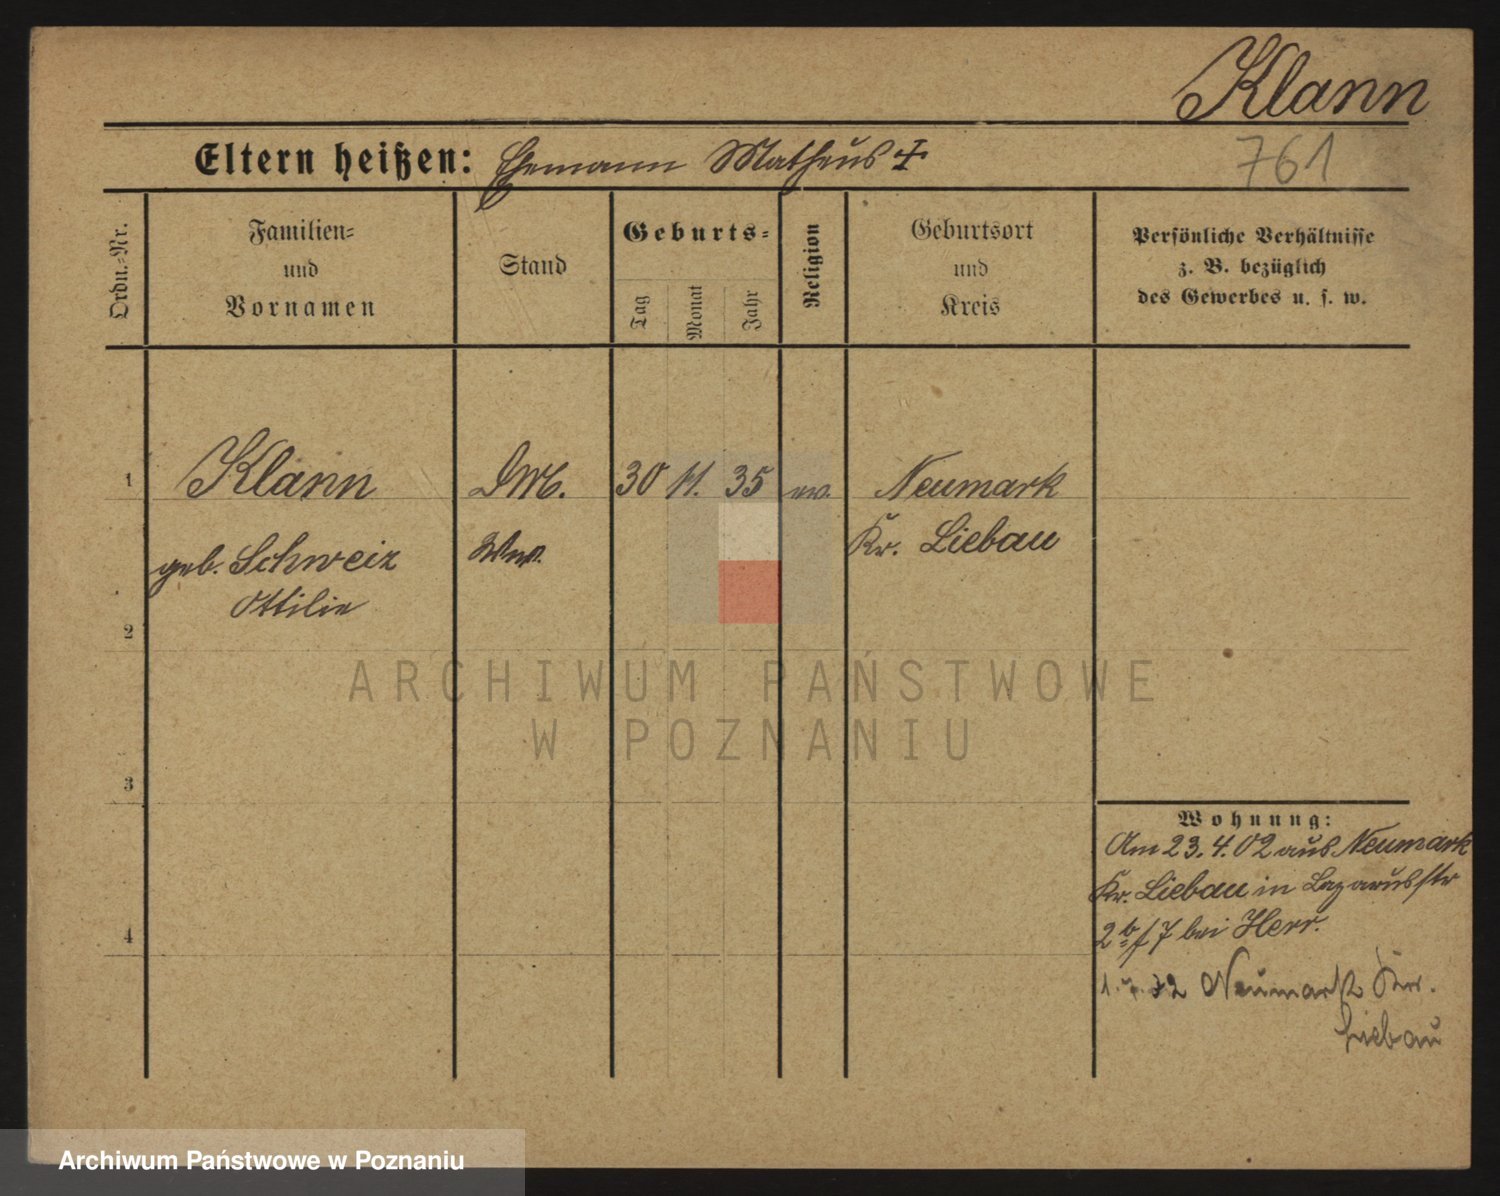 Klann
761
Eltern heißen: Ehemann Matheus †
Ordn.-Nr.
Familien-
und
Vornamen
Stand
Geburts-
Tag
Monat
Jahr
Religion
Geburtsort
und
Kreis
Persönliche Verhältnisse
z. B. bezüglich
des Gewerbes u. s. w.
1 Klann 30 11. 35 ev. Neumark
Kr. Liebau
geb. Schweiz Ww.
Ottilie
2
3
4
Wohnung:
Am 23.4.02 aus Neumark
Kr. Liebau in Lazarusstr
2b/7 bei Herr.
Neumark Kr.
Liebau
ARCHIWUM PAŃSTWOWE
W POZNANIU
Archiwum Państwowe w Poznaniu